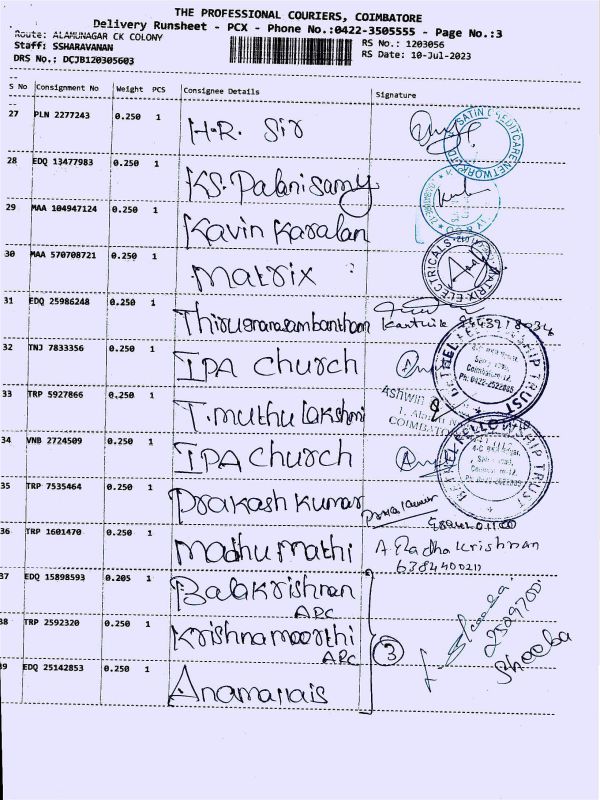 THE PROFESSIONAL COURIERS, COIMBATORE
Delivery Runsheet - PCX - Phone No.:0422-3505555 - Page No.:3
Route: ALAMUNAGAR CK COLONY
RS No.: 1203056
Staff: SSHARAVANAN
RS Date: 10-Jul-2023
DRS No.: DCJB120305603
S No Consignment No Weight PCS Consignee Details Signature
27 PLN 2277243 0.250 1 H.R. Sir
28 EDQ 13477983 0.250 1 KS. Palanisamy
29 MAA 104947124 0.250 1 Kavin Karalan
30 MAA 570708721 0.250 1 Matrix
MATRIX ELECTRICALS
31 EDQ 25986248 0.250 1
32 TNJ 7833356 0.250 1 IPA Church
33 TRP 5927866 0.250 1 T. Muthu Lakshmi
Ashwin
34 VNB 2724509 0.250 1 IPA Church
35 TRP 7535464 0.250 1 Prakash Kumar
36 TRP 1601470 0.250 1 Madhu Mathi A Radha Krishnan
6384400211
37 EDQ 15898593 0.205 1 Balakrishnan
APC
38 TRP 2592320 0.250 1 Krishnamoorthi
APC
3
39 EDQ 25142853 0.250 1
Shooba